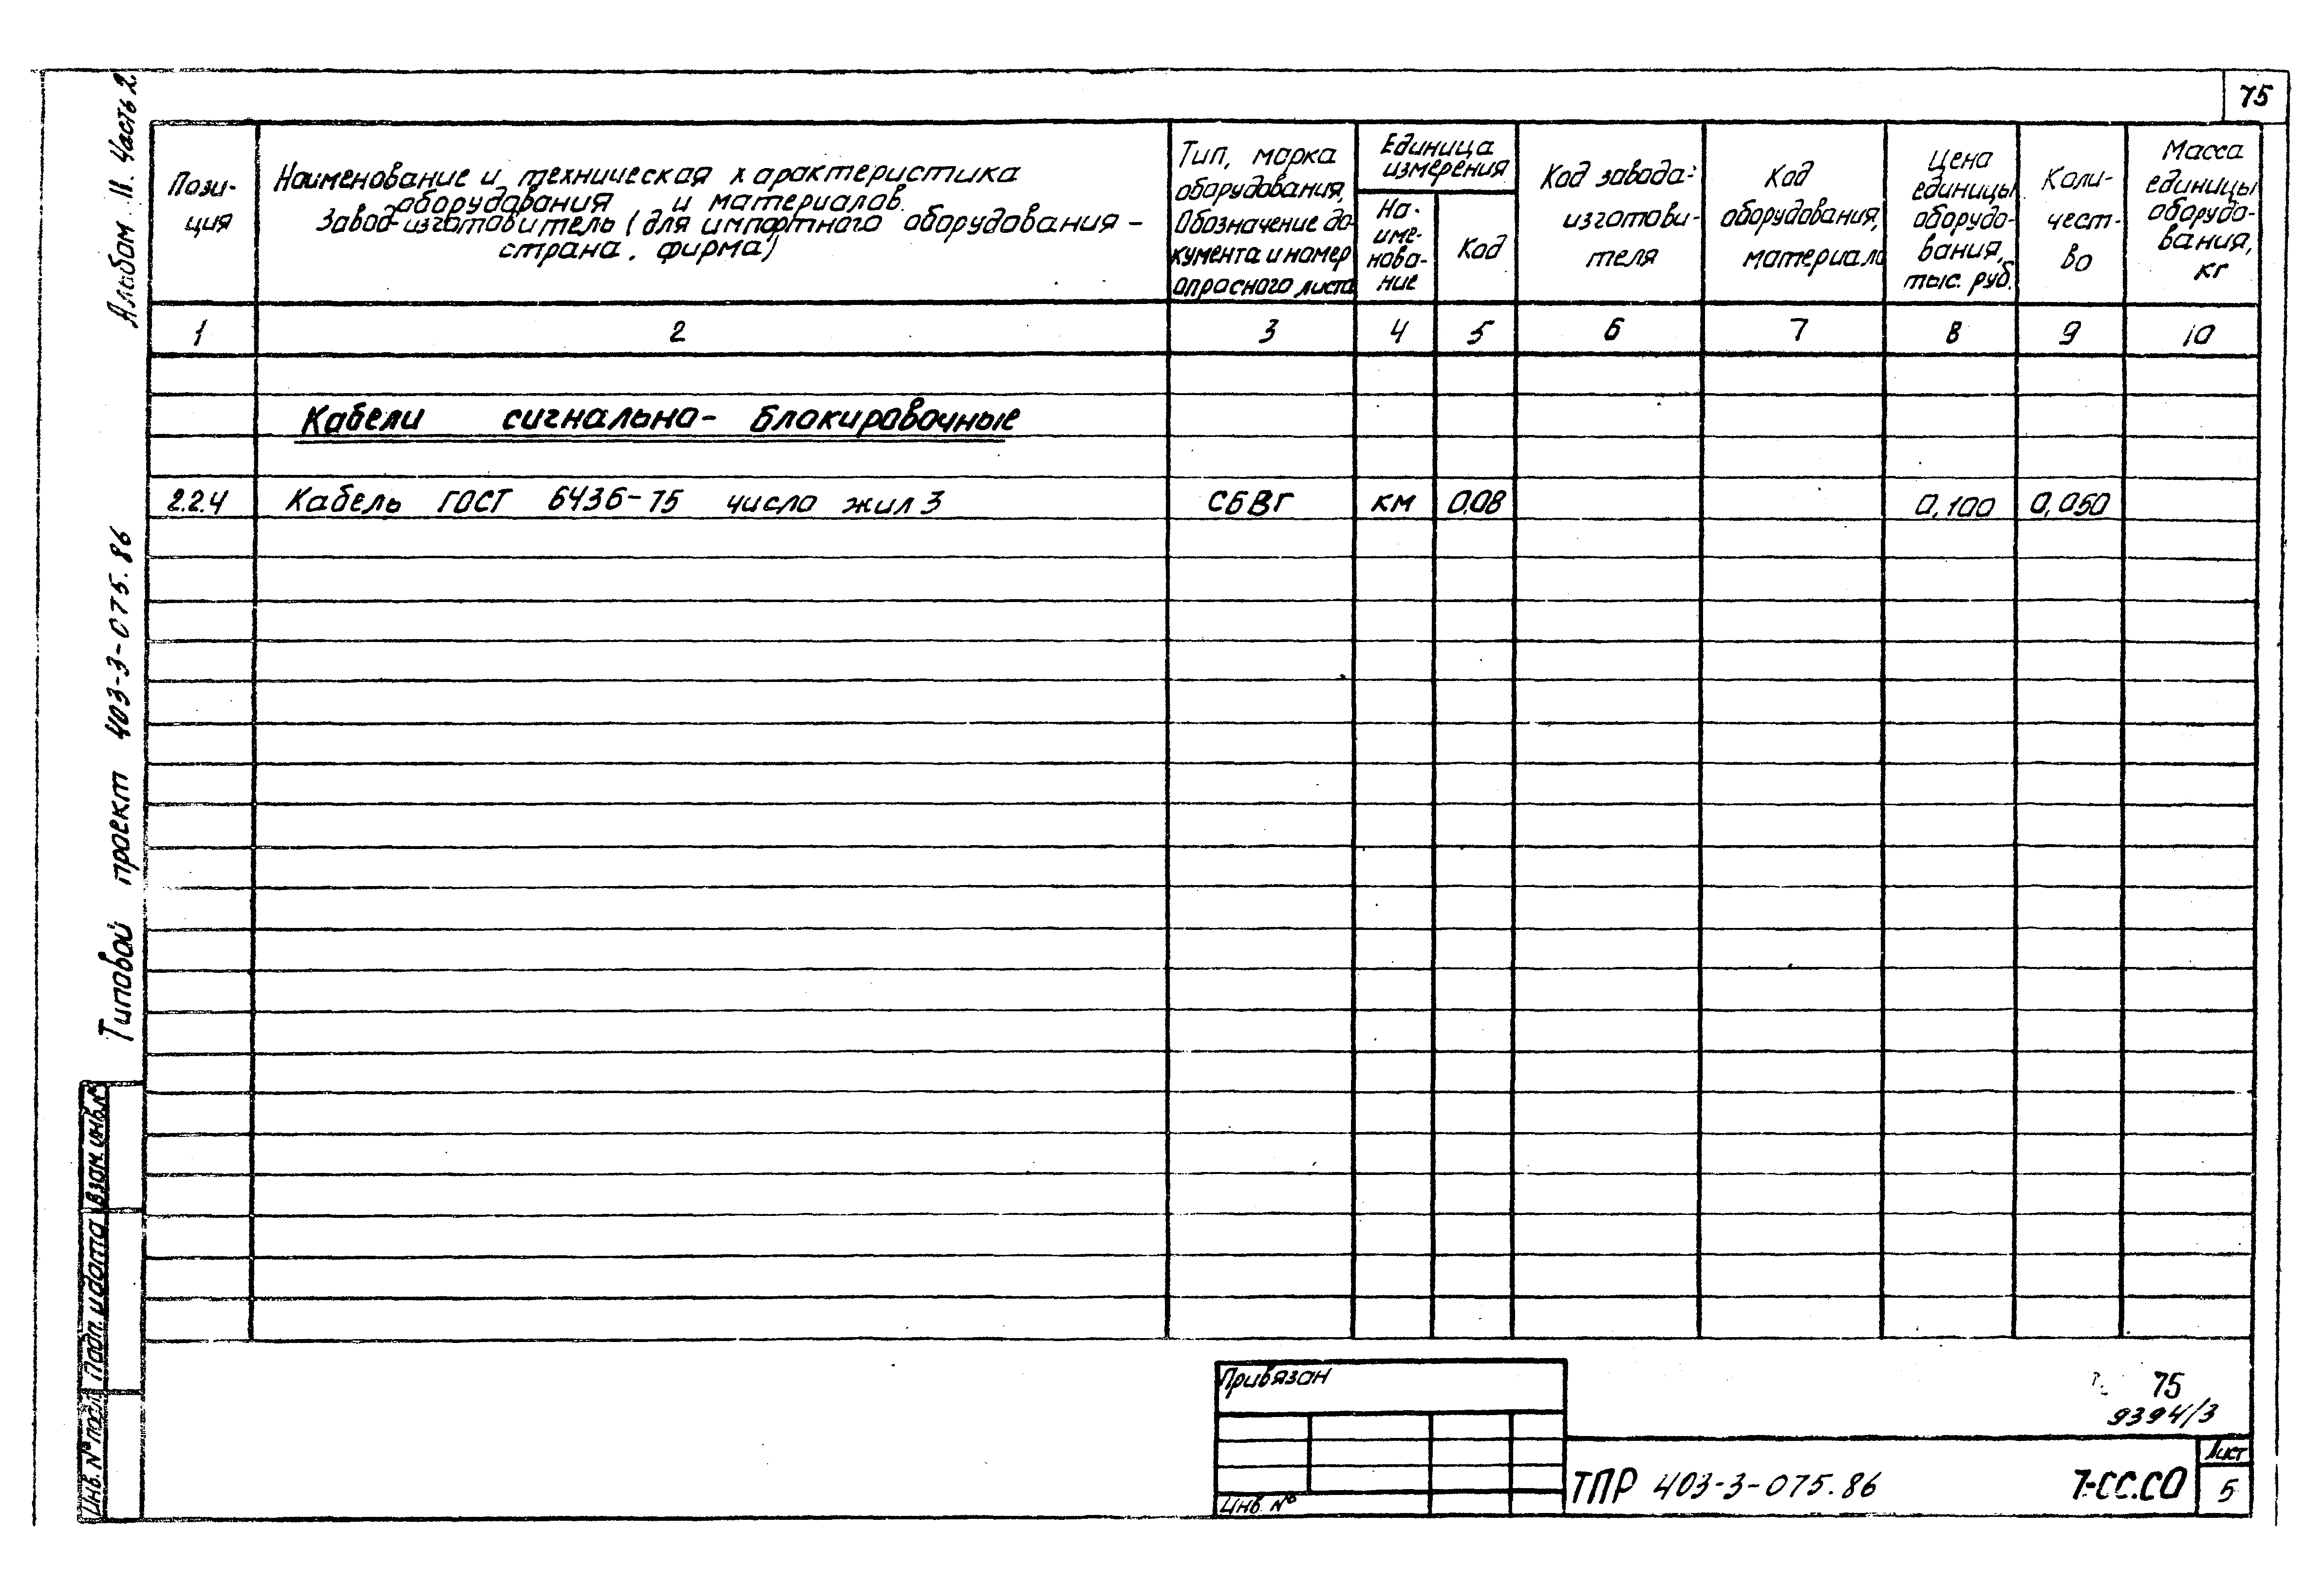 75
Альбом II. Часть 2.
Типовой проект 403-3-075.86
Пози-
ция
Наименование и техническая характеристика
оборудования и материалов.
Завод-изготовитель (для импортного оборудования -
страна, фирма)
Тип, марка
оборудования,
Обозначение до-
кумента и номер
опросного листа
Единица
измерения
На-
име-
нова-
ние
Код
Код завода-
изготови-
теля
Код
оборудования,
материала
Цена
единицы
оборудо-
вания,
тыс. руб.
Коли-
чест-
во
Масса
единицы
оборудо-
вания,
кг
1 2 3 4 5 6 7 8 9 10
Кабели сигнально-блокировочные
2.2.4 Кабель ГОСТ 6436-75 число жил 3 СБВГ км 008 0,100 0,050
Взам. инв.№
Подп. и дата
Инв. № подл.
Привязан
Инв. №
75
9394/3
ТПР 403-3-075.86 7-СС.СО
Лист
5